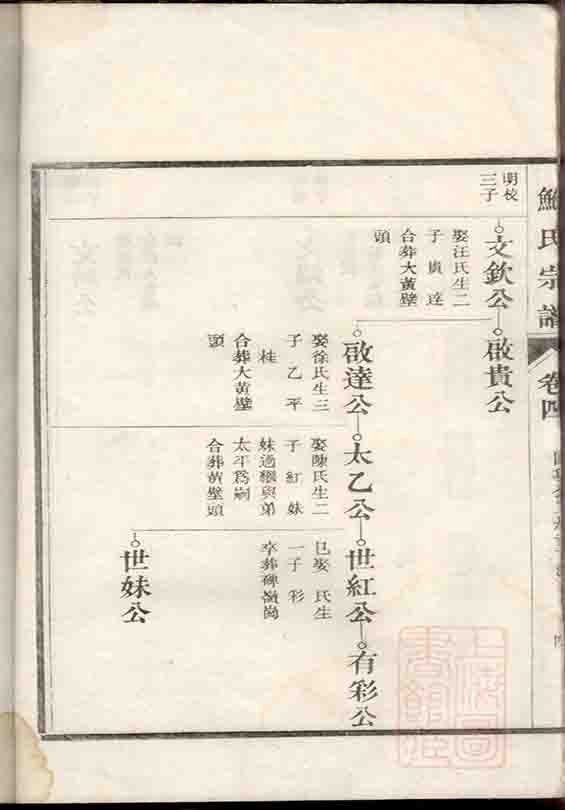 鮑氏宗譜
卷四
明校
三子
文欽公
啟貴公
娶汪氏生二
子貴達
合葬大黃壁
頭
啟達公
太乙公
世紅公
有彩公
娶徐氏生三
子乙平
桂
合葬大黃壁
頭
娶陳氏生二
子紅妹
妹過繼與弟
太平為嗣
合葬黃壁頭
娶氏生
一子彩
卒葬碑嶺崗
世妹公
上海圖
書館藏